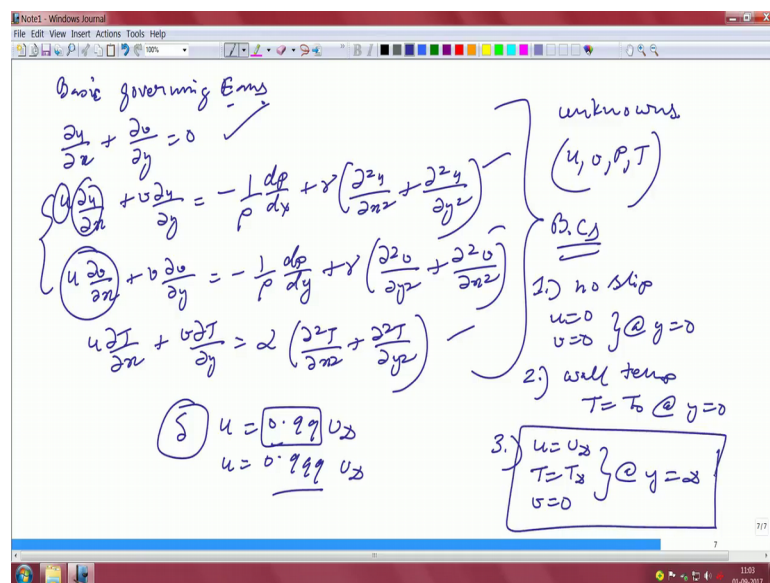 Note1 - Windows Journal
File Edit View Insert Actions Tools Help
100%
Basic governing Eqns
∂u/∂x + ∂v/∂y = 0 ✓
u ∂u/∂x + v ∂u/∂y = -1/ρ dp/dx + γ (∂²u/∂x² + ∂²u/∂y²)
u ∂v/∂x + v ∂v/∂y = -1/ρ dp/dy + γ (∂²v/∂y² + ∂²v/∂x²)
u ∂T/∂x + v ∂T/∂y = α (∂²T/∂x² + ∂²T/∂y²)
δ u = 0.99 U∞
u = 0.999 U∞
unknowns
(u, v, P, T)
B.Cs
1.) no slip
u=0
v=0 } @ y=0
2.) wall temp
T = T₀ @ y=0
3.) u = U∞
T = T∞ } @ y = ∞
v=0
7/7
7
11:03
01-09-2017